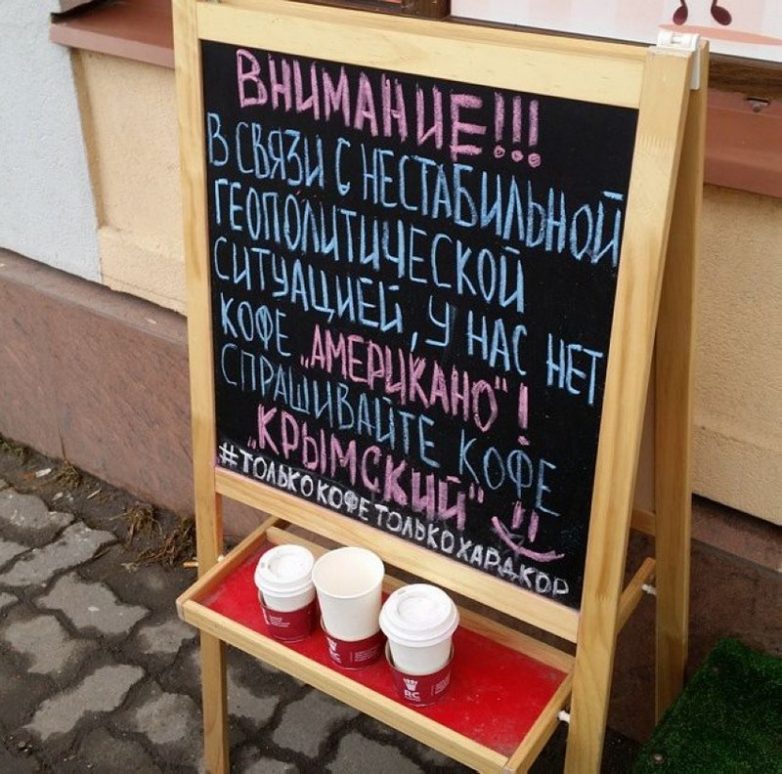 ВНИМАНИЕ!!!
В СВЯЗИ С НЕСТАБИЛЬНОЙ
ГЕОПОЛИТИЧЕСКОЙ
СИТУАЦИЕЙ, У НАС НЕТ
КОФЕ „АМЕРИКАНО"!
СПРАШИВАЙТЕ КОФЕ
„КРЫМСКИЙ"
#ТОЛЬКОКОФЕТОЛЬКОХАРДКОР
ВС